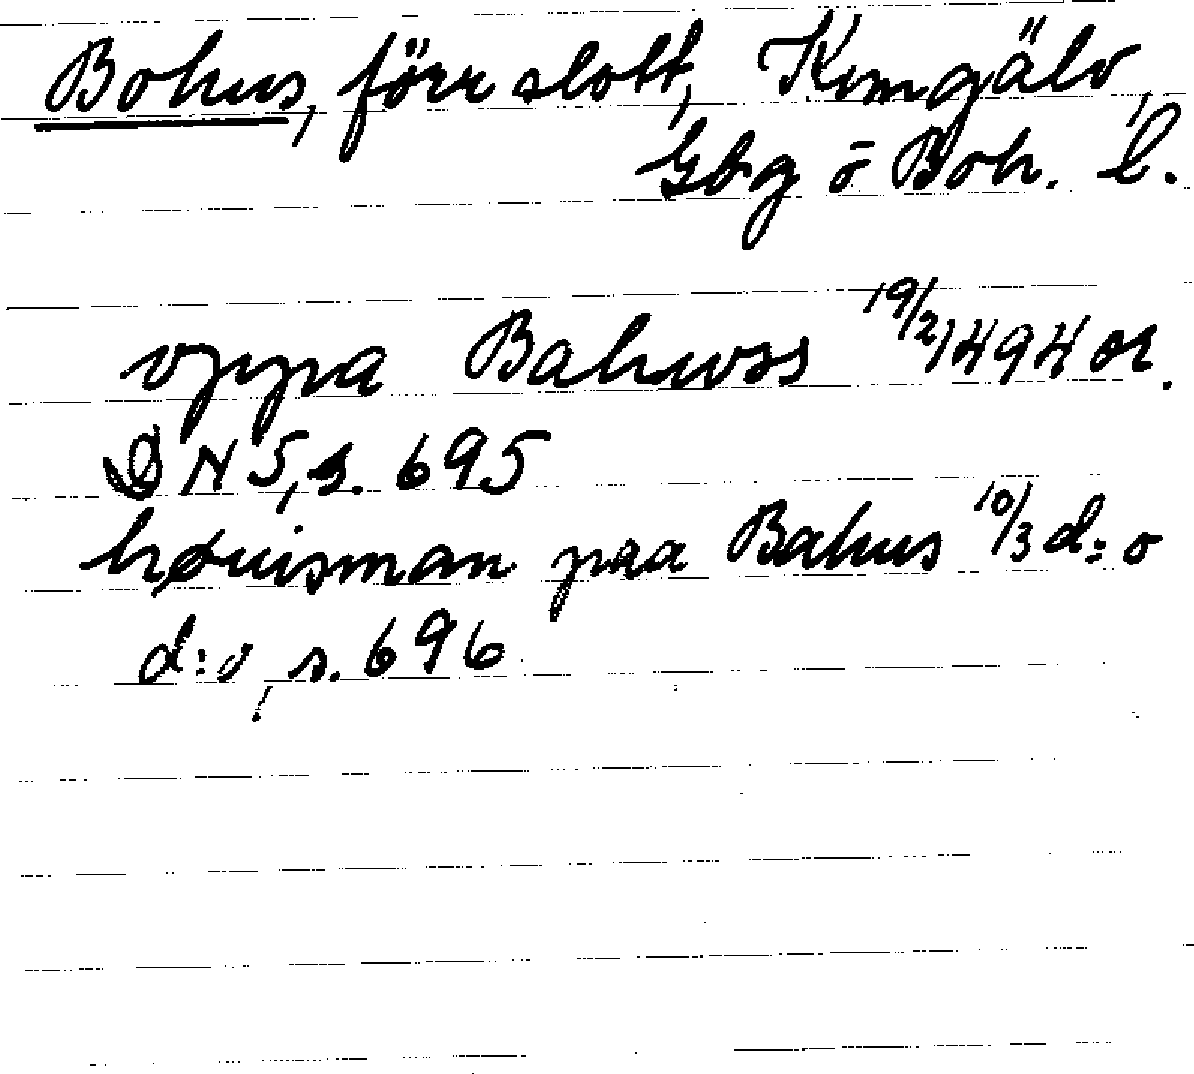 Bohus, förr slott, Kungälv,
Gbg ō Boh. l.
vppa Bahwss 19/2 1494 or.
DN 5, s. 695
høuisman paa Bahus 10/3 d:o
d:o, s. 696